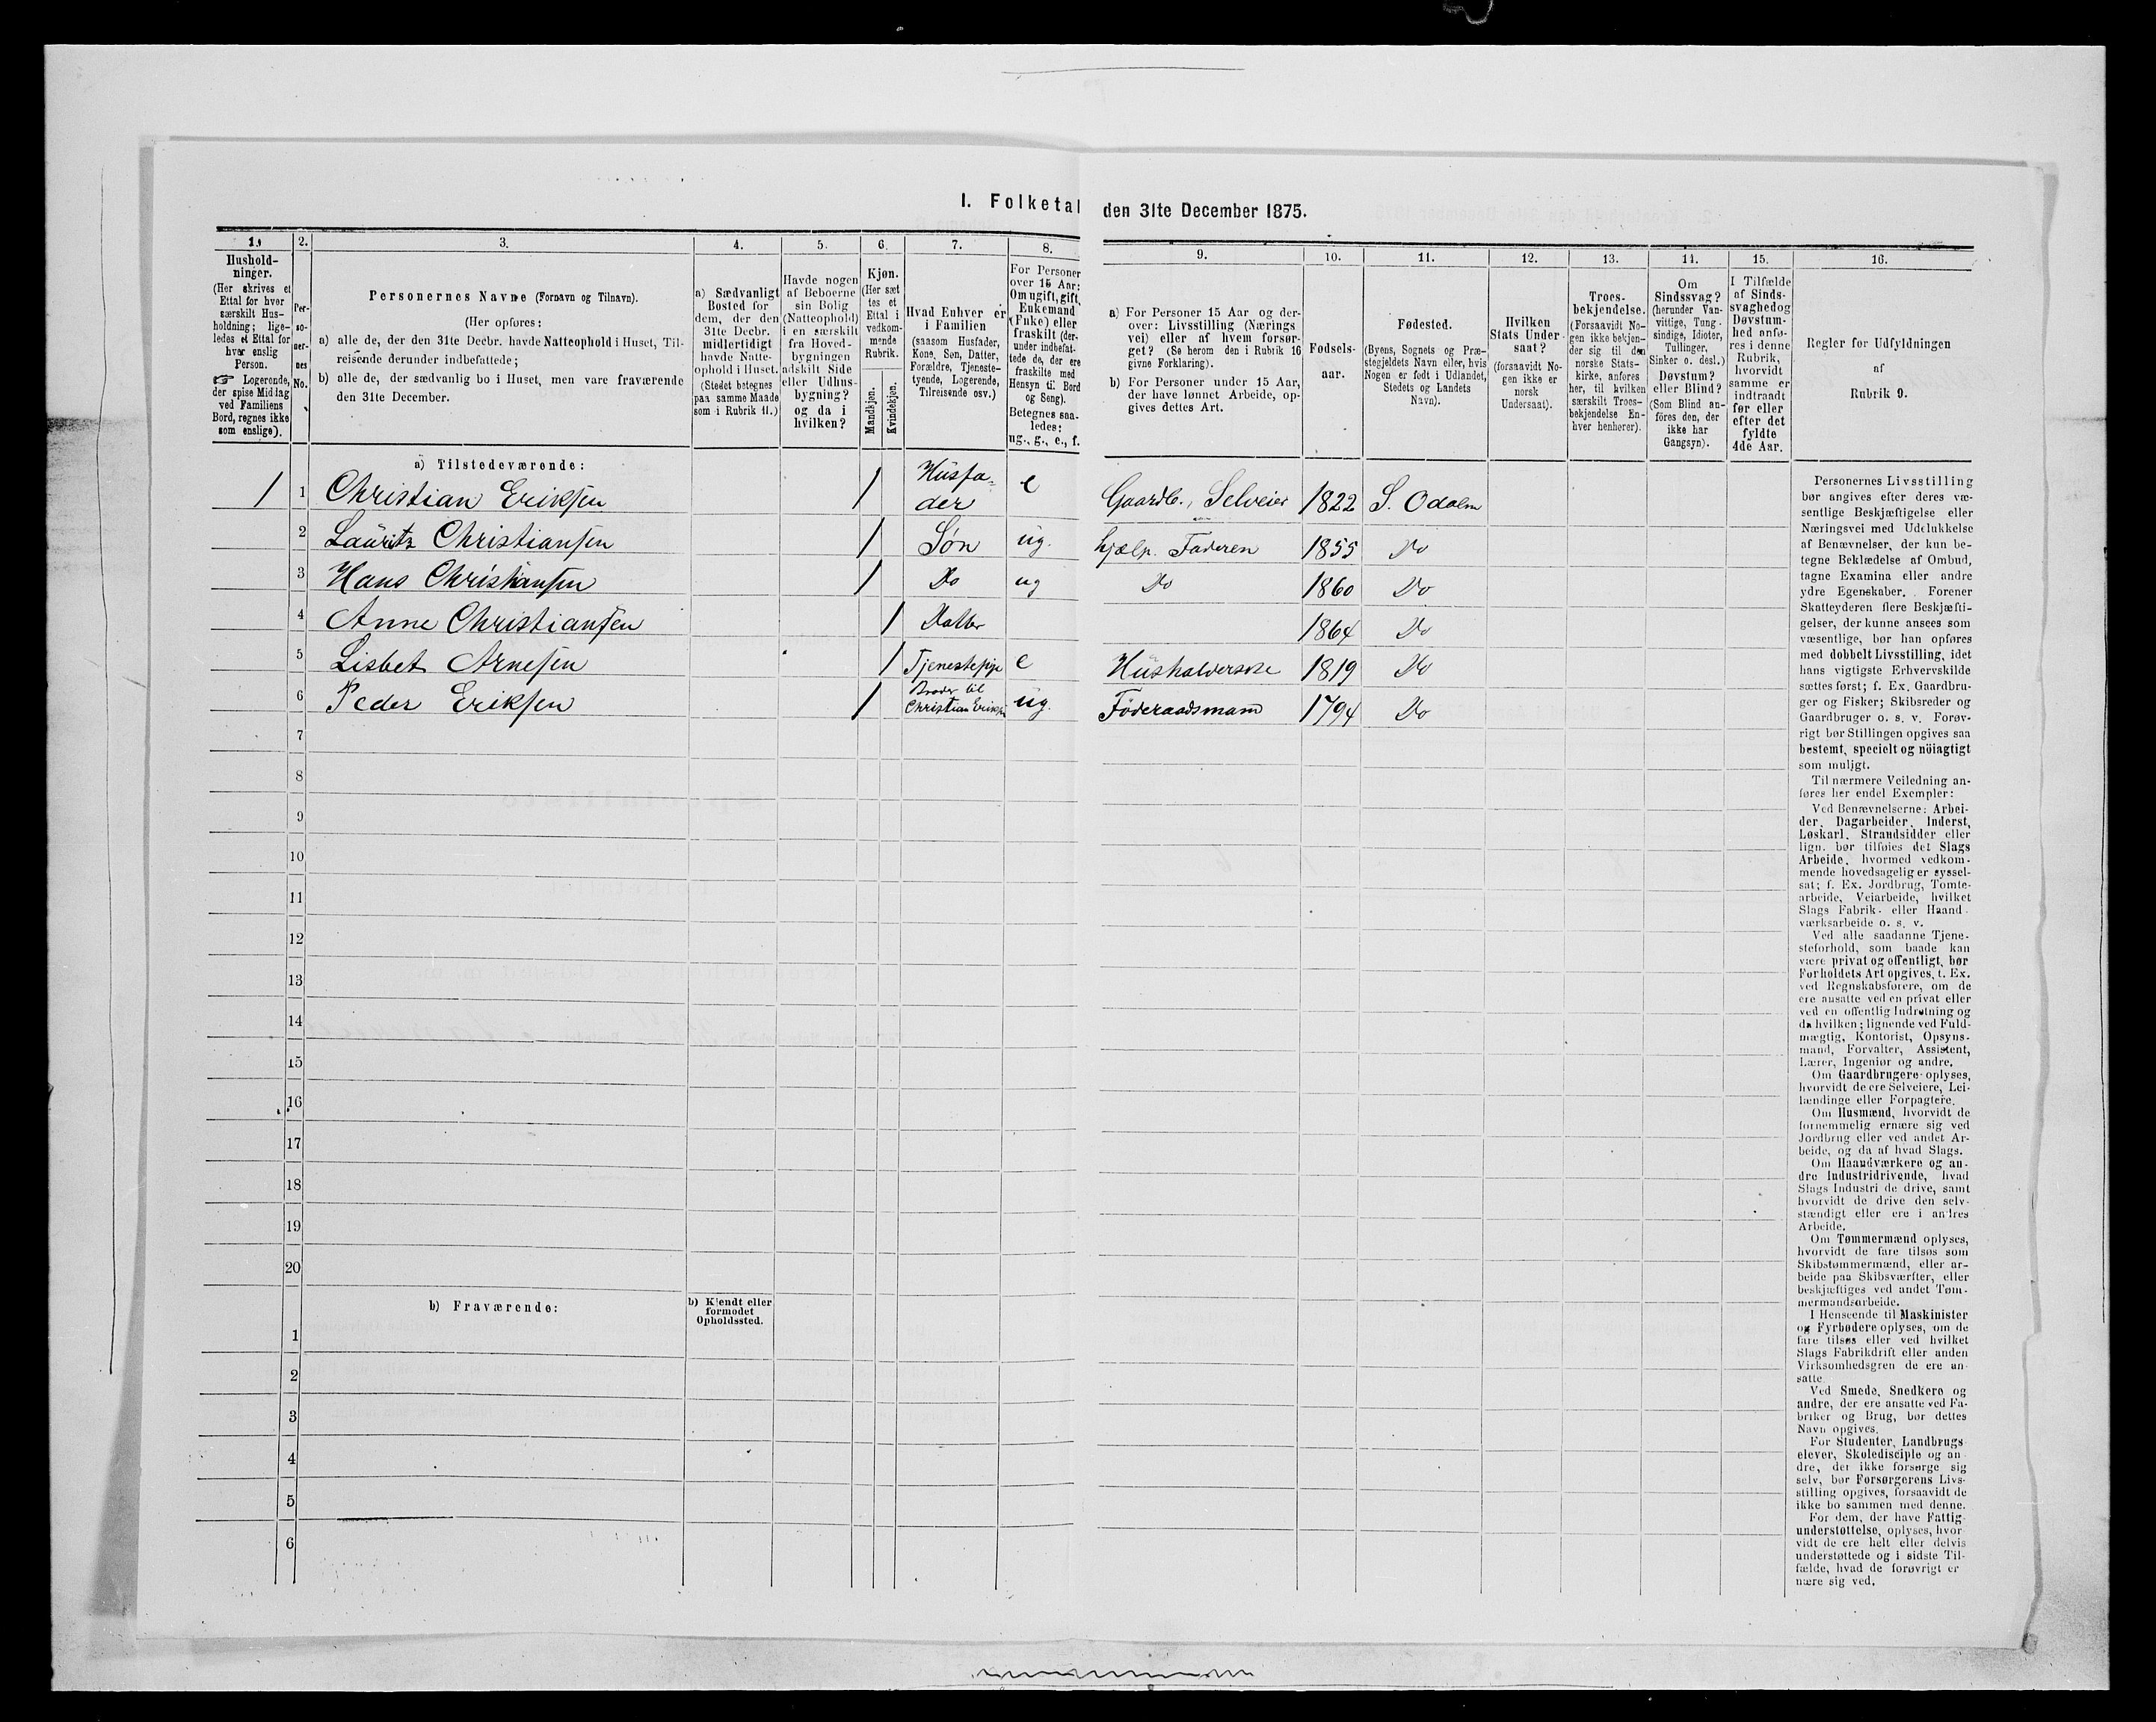 I. Folketal den 31te December 1875.
1. 2. 3. 4. 5. 6. 7. 8. 9. 10. 11. 12. 13. 14. 15. 16.
Hushold-
ninger.
(Her skrives et
Ettal for hver
særskilt Hus-
holdning; lige-
ledes et Ettal for
hver enslig
Person.
☞ Logerende,
der spise Middag
ved Familiens
Bord, regnes ikke
som enslige).
Per-
so-
ner-
nes
No.
Personernes Navne (Fornavn og Tilnavn).
(Her opføres:
a) alle de, der den 31te Decbr. havde Natteophold i Huset, Til-
reisende derunder indbefattede;
b) alle de, der sædvanlig bo i Huset, men vare fraværende
den 31te December.
a) Sædvanligt
Bosted for
dem, der den
31te Decbr.
midlertidigt
havde Natte-
ophold i Huset.
(Stedet betegnes
paa samme Maade
som i Rubrik 11.)
Havde nogen
af Beboerne
sin Bolig
(Natteophold)
i en særskilt
fra Hoved-
bygningen
adskilt Side
eller Udhus-
bygning?
og da i
hvilken?
Kjøn.
(Her sæt
tes et
Ettal i
vedkom-
mende
Rubrik.
Mandkjøn.
Kvindekjøn.
Hvad Enhver er
i Familien
(saasom Husfader,
Kone, Søn, Datter,
Forældre, Tjeneste-
tyende, Logerende,
Tilreisende osv.)
For Personer
over 15 Aar:
Om ugift, gift,
Enkemand
(Enke) eller
fraskilt (der-
under indbefat-
tede de, der ere
fraskilte med
Hensyn til Bord
og Seng).
Betegnes saa-
ledes:
ug., g., e., f.
a) For Personer 15 Aar og der-
over: Livsstilling (Nærings
vei) eller af hvem forsør-
get? (Se herom den i Rubrik 16
givne Forklaring).
b) For Personer under 15 Aar,
der have lønnet Arbeide, op-
gives dettes Art.
Fødsels-
aar.
Fødested.
(Byens, Sognets og Præ-
stegjeldets Navn eller, hvis
Nogen er født i Udlandet,
Stedets og Landets
Navn).
Hvilken
Stats Under-
saat?
(forsaavidt No-
gen ikke er
norsk
Undersaat).
Troes-
bekjendelse.
(Forsaavidt No-
gen ikke bekjen-
der sig til den
norske Stats-
kirke, anføres
her, til hvilken
særskilt Troes-
bekjendelse En-
hver henhører).
Om
Sindssvag?
(herunder Van-
vittige, Tung-
sindige, Idioter,
Tullinger,
Sinker o. desl.)
Døvstum?
eller Blind?
(Som Blind an-
føres den, der
ikke har
Gangsyn).
I Tilfælde
af Sinds-
svaghed og
Døvstum-
hed anfø-
res i denne
Rubrik,
hvorvidt
samme er
indtraadt
før eller
efter det
fyldte
4de Aar.
Regler for Udfyldningen
af
Rubrik 9.
a) Tilstedeværende:
1 1 Christian Eriksen 1 Husfa-
der e Gaardb., Selveier 1822 S. Odalen
2 Lauritz Christiansen 1 Søn ug. hjælp. Faderen 1855 Do
3 Hans Christiansen 1 Do ug Do 1860 Do
4 Anne Christiansen 1 Datter 1864 Do
5 Lisbet Arnesen 1 Tjenestepige e Husholderske 1819 Do
6 Peder Eriksen 1 Broder til
Christian Eriksen ug. Föderaadsmand 1794 Do
7
8
9
10
11
12
13
14
15
16
17
18
19
20
b) Fraværende:
b) Kjendt eller
formodet
Opholdssted.
1
2
3
4
5
6
Personernes Livsstilling
bør angives efter deres væ-
sentlige Beskjæftigelse eller
Næringsvei med Udelukkelse
af Benævnelser, der kun be-
tegne Beklædelse af Ombud,
tagne Examina eller andre
ydre Egenskaber. Forener
Skatteyderen flere Beskjæfti-
gelser, der kunne ansees som
væsentlige, bør han opføres
med dobbelt Livsstilling, idet
hans vigtigste Erhvervskilde
sættes først; f. Ex. Gaardbru-
ger og Fisker; Skibsreder og
Gaardbruger o. s. v. Forøv-
rigt bør Stillingen opgives saa
bestemt, specielt og nöiagtigt
som muligt.
Til nærmere Veiledning an-
føres her endel Exempler:
Ved Benævnelserne: Arbei-
der, Dagarbeider, Inderst,
Løskarl, Strandsidder eller
lign. bør tilføies det Slags
Arbeide, hvormed vedkom-
mende hovedsagelig er syssel-
sat; f. Ex. Jordbrug, Tomte-
arbeide, Veiarbeide, hvilket
Slags Fabrik- eller Haand-
værksarbeide o. s. v.
Ved alle saadanne Tjene-
steforhold, som baade kan
være privat og offentligt, bør
Forholdets Art opgives, t. Ex.
ved Regnskabsførere, om de
ere ansatte ved en privat eller
ved en offentlig Indretning og
da hvilken; lignende ved Fuld-
mægtig, Kontorist, Opsyns-
mand, Forvalter, Assistent,
Lærer, Ingeniør og andre.
Om Gaardbrugere oplyses,
hvorvidt de ere Selveiere, Lei-
lændinge eller Forpagtere.
Om Husmænd, hvorvidt de
fornemmelig ernære sig ved
Jordbrug eller ved andet Ar-
beide, og da af hvad Slags.
Om Haandværkere og an-
dre Industridrivende, hvad
Slags Industri de drive, samt
hvorvidt de drive den selv-
stændigt eller ere i andres
Arbeide.
Om Tømmermænd oplyses,
hvorvidt de fare tilsøs som
Skibstømmermænd, eller ar-
beide paa Skibsværfter, eller
beskjæftiges ved andet Tøm-
mermandsarbeide.
I Henseende til Maskinister
og Fyrbødere oplyses, om de
fare tilsøs eller ved hvilket
Slags Fabrikdrift eller anden
Virksomhedsgren de ere an-
satte.
Ved Smede, Snedkere og
andre, der ere ansatte ved Fa-
briker og Brug, bør dettes
Navn opgives.
For Studenter, Landbrugs-
elever, Skoledisciple og an-
dre, der ikke forsørge sig
selv, bør Forsørgerens Livs-
stilling opgives, forsaavidt de
ikke bo sammen med denne.
For dem, der have Fattig-
understøttelse, oplyses, hvor-
vidt de ere helt eller delvis
understøttede og i sidste Til-
fælde, hvad de forøvrigt er-
nære sig ved.